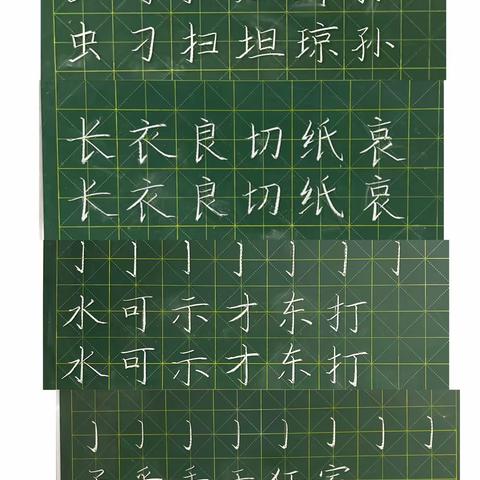 虫刁扫坦琼孙
长衣良切纸哀
长衣良切纸哀
亅亅亅亅亅亅亅
水可示才东打
水可示才东打
亅亅亅亅亅亅亅亅